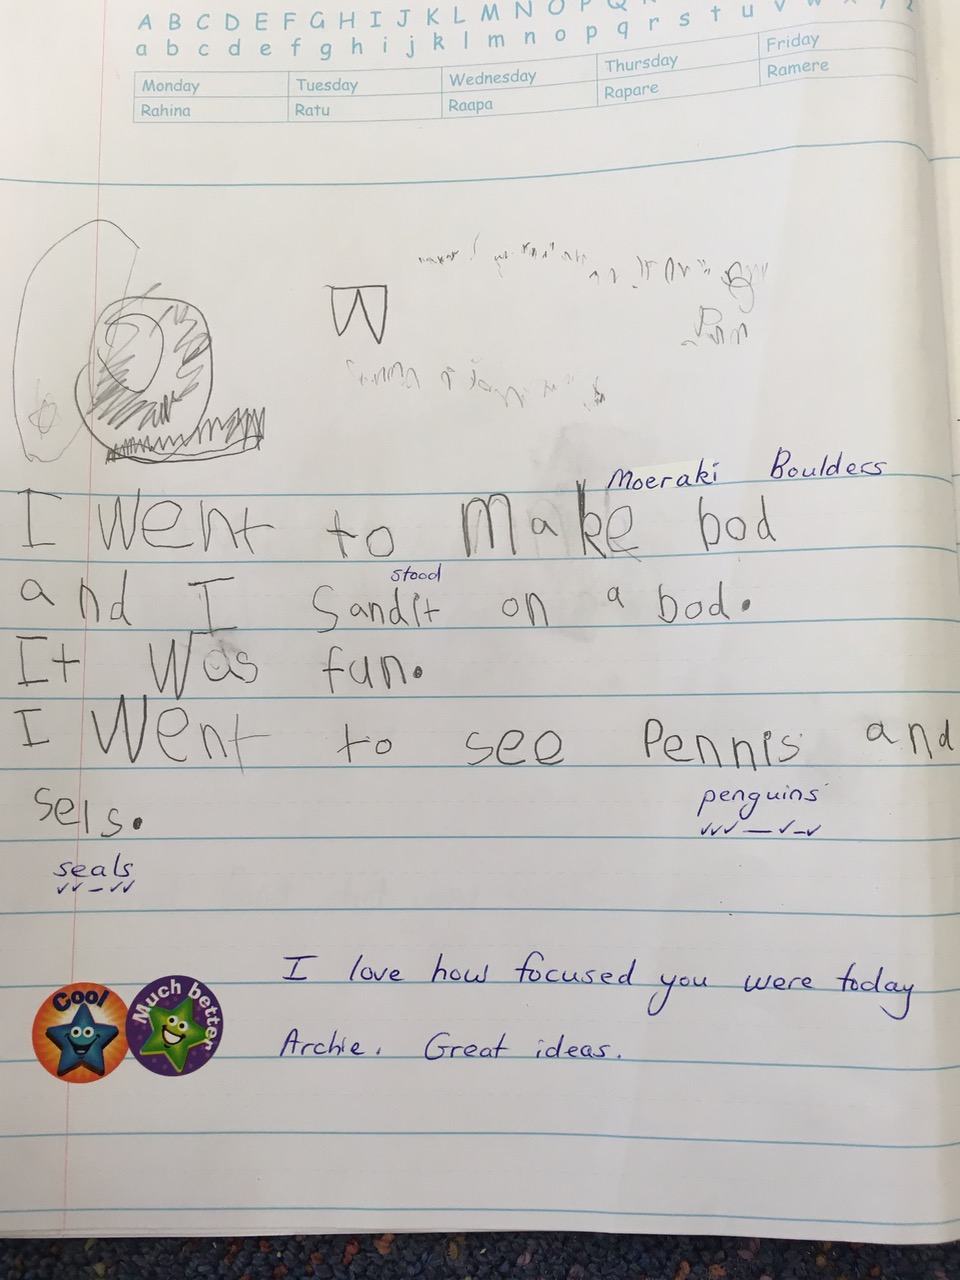 A B C D E F G H I J K L M N O P
a b c d e f g h i j k l m n o p q r s t u v
Monday Tuesday Wednesday Thursday Friday
Rahina Ratu Raapa Rapare Ramere
Moeraki Boulders
I went to make bod
stood
and I Sandit on a bod.
It was fun.
I went to see Pennis and
penguins
sels.
seals
Cool
Much better
I love how focused you were today
Archie. Great ideas.